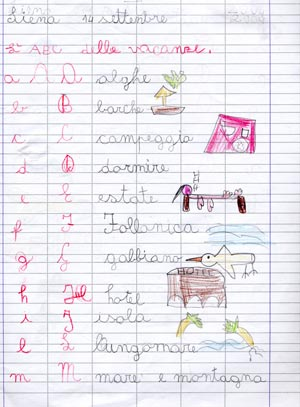 Siena 14 settembre
L' ABC delle vacanze.
a A alghe
b B barche
c C campeggia
d D dormire
e E estate
f F Follonica
g G gabbiano
HOTEL
h H hotel
i I isola
l L lungomare
m M mare e montagna